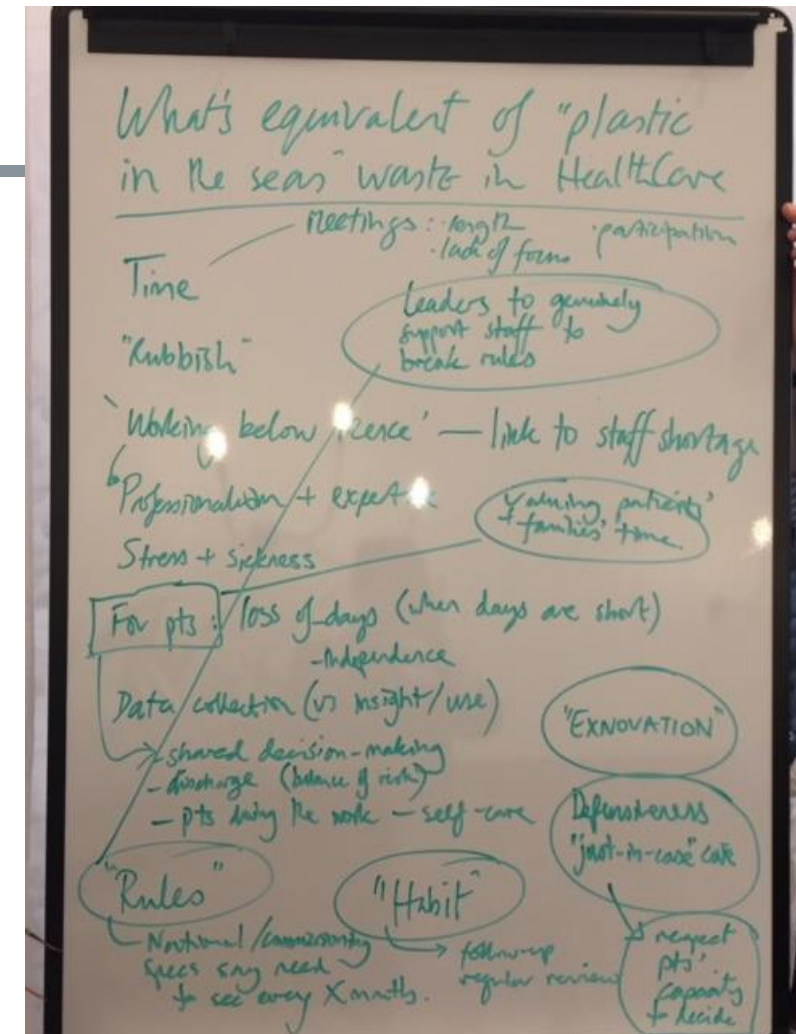 What's equivalent of "plastic
in the seas" waste in HealthCare
Meetings : · length
· lack of focus
· participation
Time
leaders to genuinely
support staff to
break rules
"Rubbish"
'Working below licence' — link to staff shortage
Professionalism + expertise
Valuing patients'
+ families' time.
Stress + sickness
For pts : loss of days (when days are short)
- Independence
Data collection (vs insight/use)
"EXNOVATION"
- shared decision-making
- discharge (balance of risk)
- pts doing the work - self-care
Defensiveness
"just-in-case" care
"Rules"
"Habit"
National/commissioning
specs say need
to see every X months.
follow-up
regular review
respect
pts'
capacity
to decide